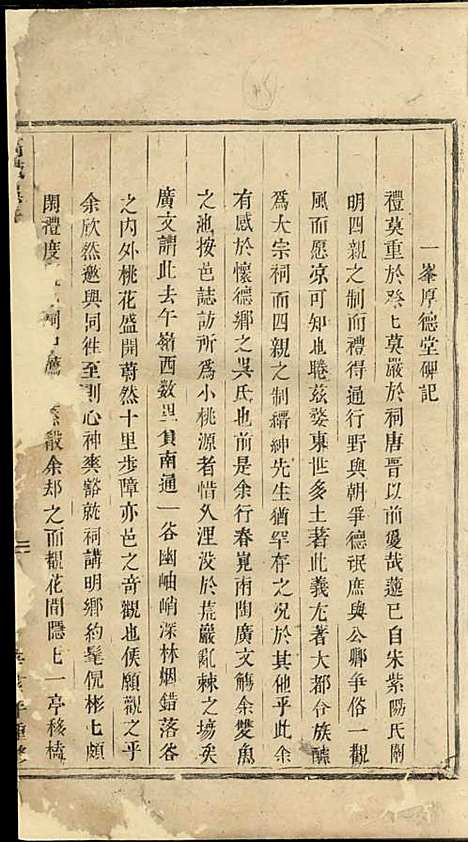 一峯厚德堂碑記
禮莫重於祭祭莫嚴於祠唐晋以前夐哉邈已自朱紫陽氏闡
明四親之制而禮得通行野與朝爭德氓庶與公卿爭俗一觀
風而愿凉可知也睠茲婺東世多土著此義尢著大都合族醵
爲大宗祠而四親之制縉紳先生猶罕存之况於其他乎此余
有感於懷德鄉之吳氏也前是余行春覓南陶廣文觴余雙魚
之池按邑誌訪所爲小桃源者惜久湮没於荒巖亂棘之塲矣
廣文謂此去午嶺西数里負南通一谷幽岫峭深林烟錯落谷
之内外桃花盛開蔚然十里步障亦邑之奇觀也侯願觀之乎
余欣然邀與同徃至則心神爽豁就祠講明鄉約髦倪彬匕頗
閑禮度 祠 散余却之而觀花間隱匕一亭移椅